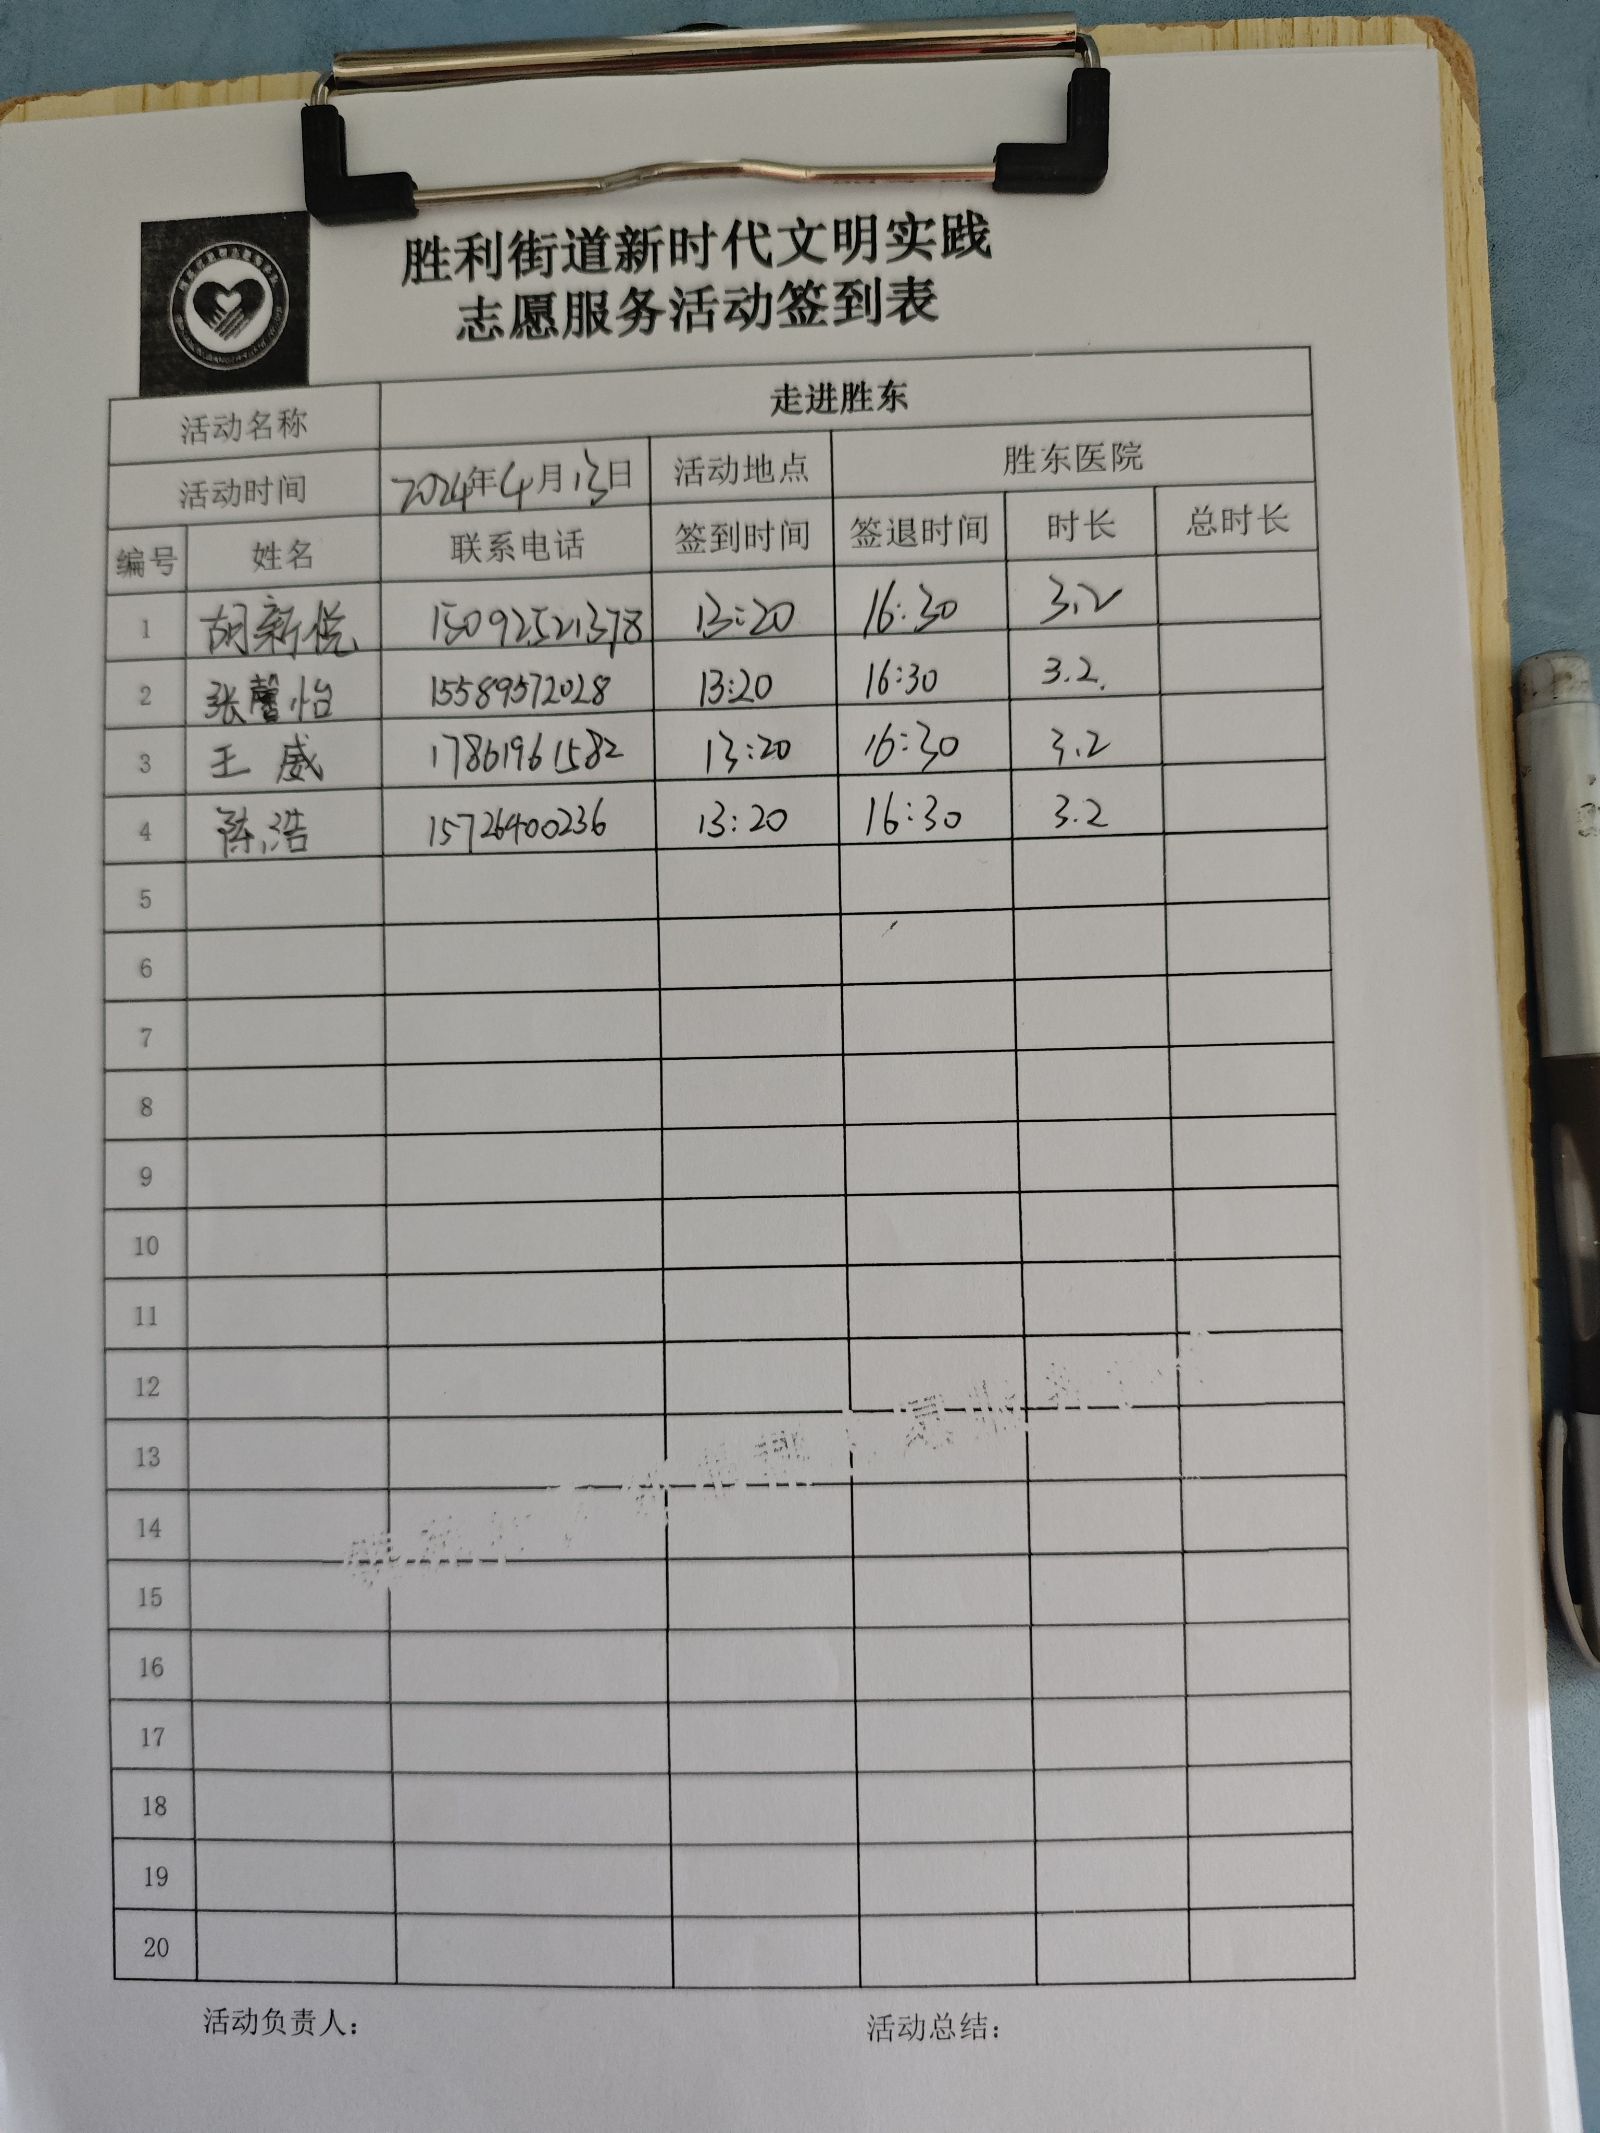 胜利街道新时代文明实践
志愿服务活动签到表
活动名称 走进胜东
活动时间 2024年4月13日 活动地点 胜东医院
编号 姓名 联系电话 签到时间 签退时间 时长 总时长
1 胡新悦 15092521378 13:20 16:30 3.2
2 张馨怡 15589572028 13:20 16:30 3.2
3 王威 17861961582 13:20 16:30 3.2
4 陈浩 15726400236 13:20 16:30 3.2
5
6
7
8
9
10
11
12
13
14
15
16
17
18
19
20
活动负责人： 活动总结：